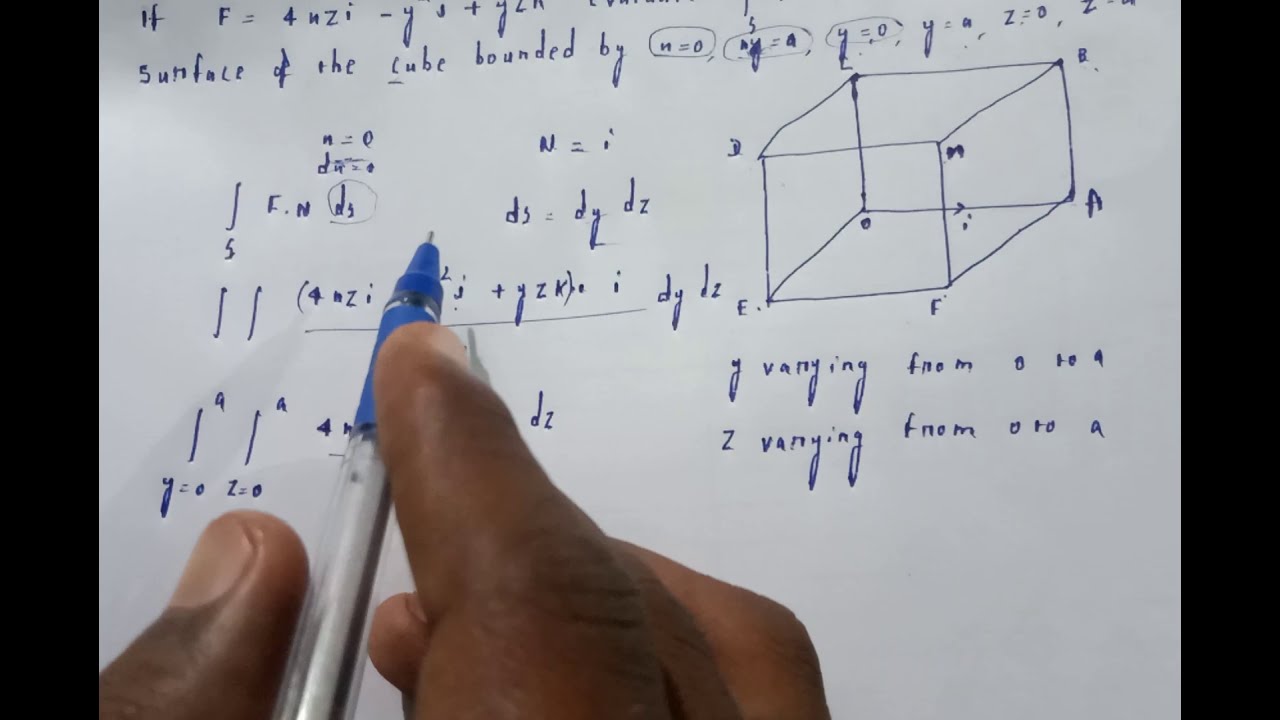 If F = 4xzi - y²j + yzk
surface of the cube bounded by x=0, x=a, y=0, y=a, z=0, z=a
x=0
dx=0
N = i
∫ F.N ds
S
ds = dy dz
∫∫ (4xzi ²j + yzk). i dy dz
C B
D M
O i A
E F
y varying from 0 to a
z varying from 0 to a
∫ᵃ ∫ᵃ 4x dz
y=0 z=0